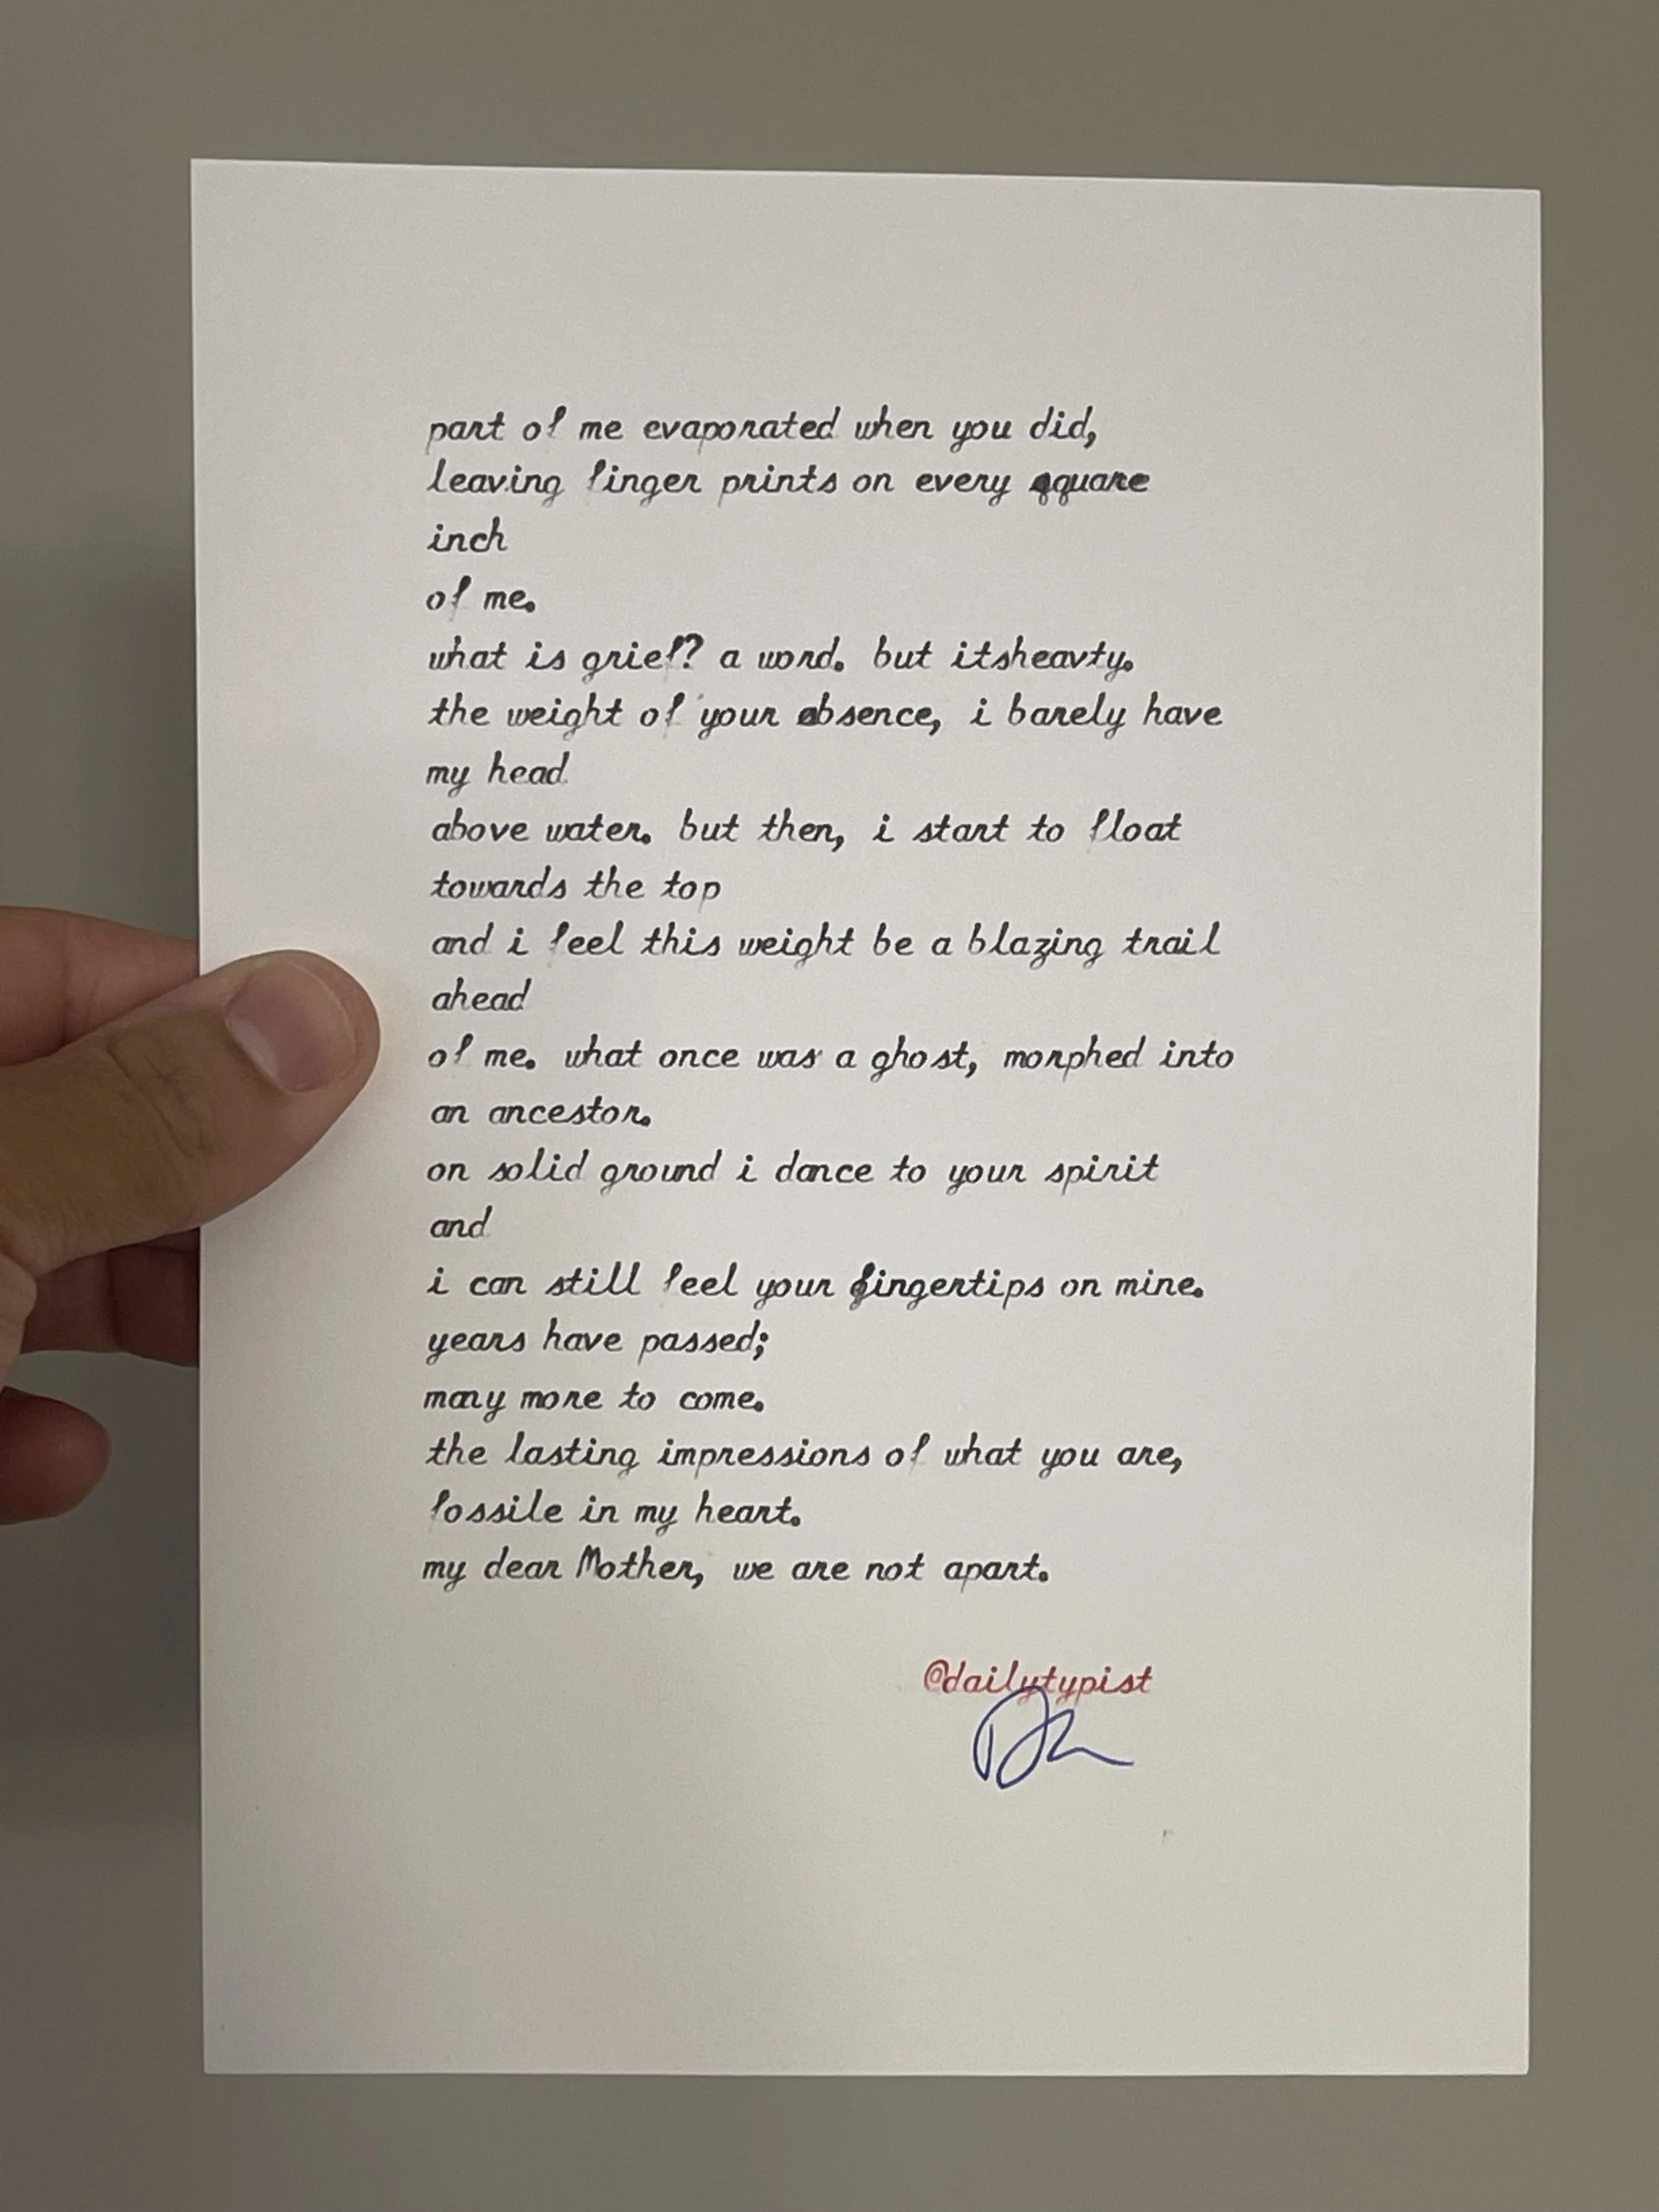 part of me evaporated when you did,
leaving finger prints on every square
inch
of me.
what is grief? a word. but itsheavty.
the weight of your absence, i barely have
my head
above water. but then, i start to float
towards the top
and i feel this weight be a blazing trail
ahead
of me. what once was a ghost, morphed into
an ancestor.
on solid ground i dance to your spirit
and
i can still feel your fingertips on mine.
years have passed;
many more to come.
the lasting impressions of what you are,
fossile in my heart.
my dear Mother, we are not apart.
@dailytypist